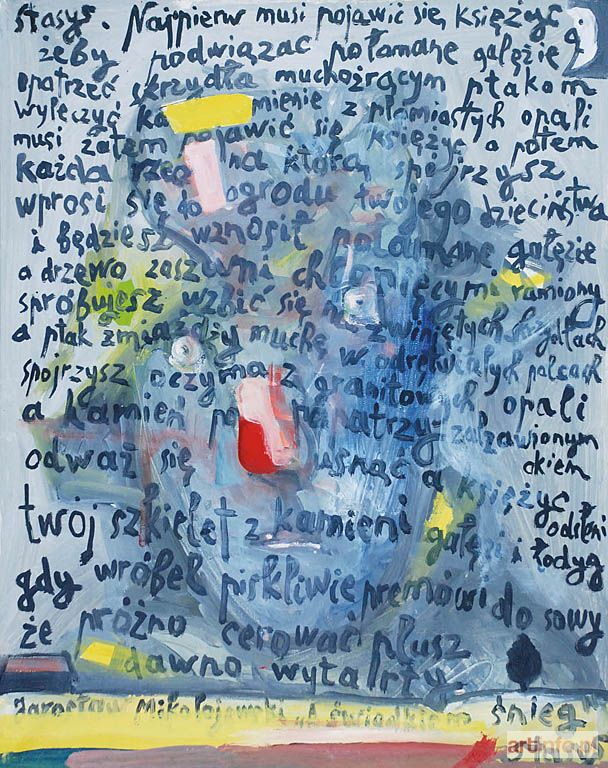 Stasys. Najpierw musi pojawić się, księżyc
żeby podwiązać połamane gałęzie i
opatrzeć skrzydła muchożrącym ptakom
wyleczyć mienie z plamiastych opali
musi zatem pojawić się księżyc a potem
każda rzecz na którą spojrzysz
wprosi się do ogrodu twojego dzieciństwa
i będziesz wznosił połamane gałęzie
a drzewo zaszumi chłopięcymi ramiony
spróbujesz wzbić się na zwiniętych
a ptak zmiażdży muchę w odrętwiałych palcach
spojrzysz oczyma z granitowych opali
a kamień popatrzy załzawionym
okiem
odważ się usnąć a księżyc
odsłoni
twój szkielet z kamieni gałęzi i łodyg
gdy wróbel piskliwie premówi do sowy
że próżno cerować plusz
dawno wytarty
Jarosław Mikołajewski „A świadkiem śnieg"
artinfo.pl